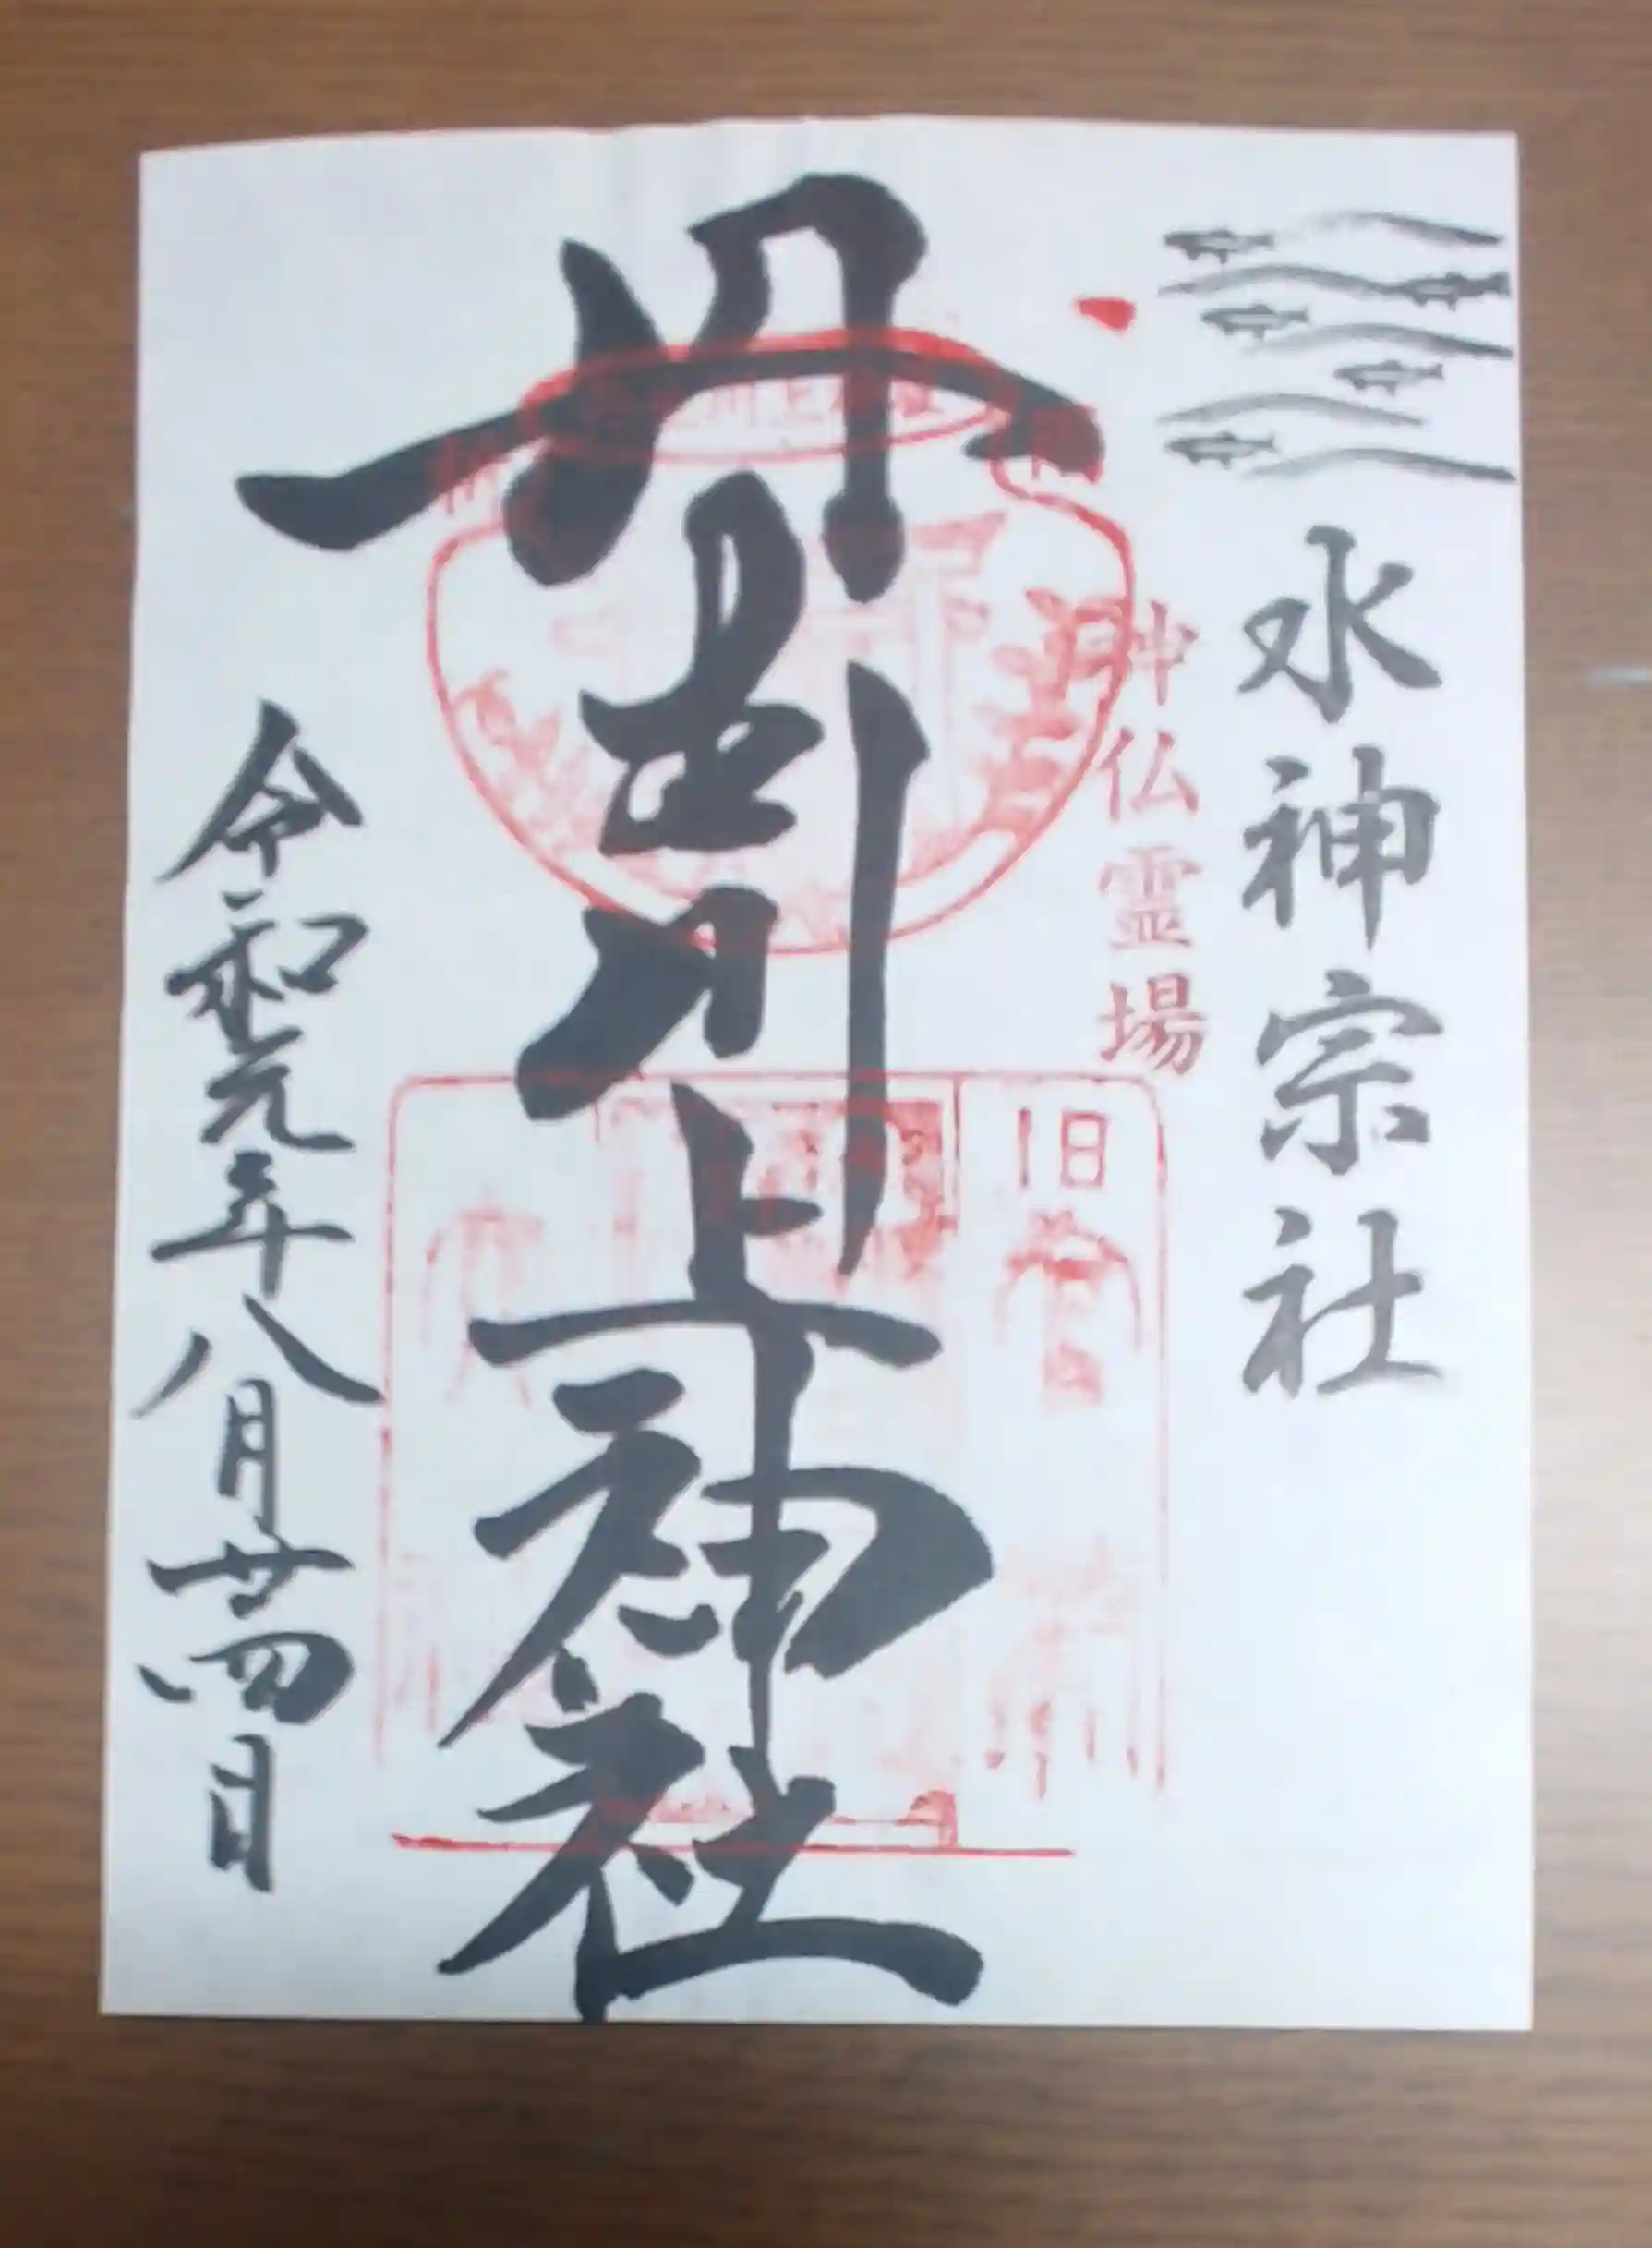 水神宗社
神仏霊場
丹生川上神社
令和元年八月廿四日
旧